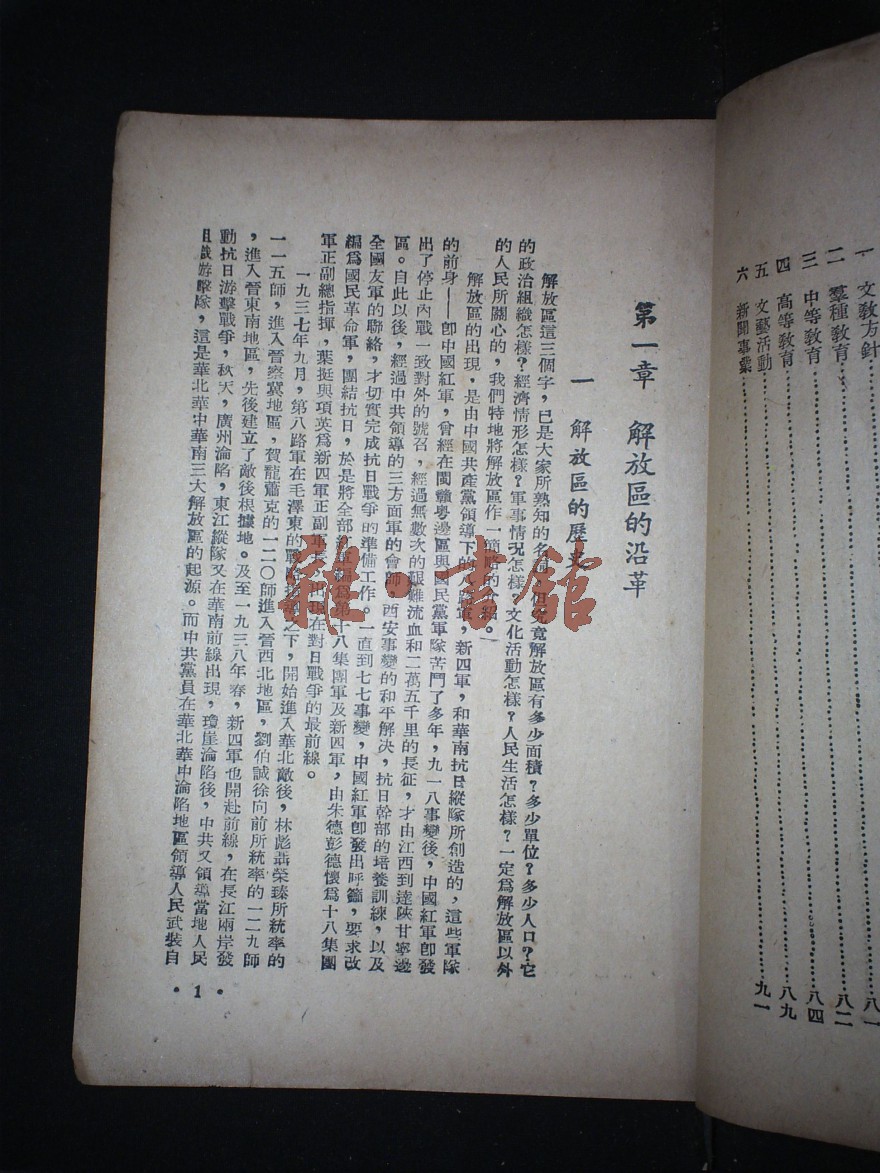 一 文教方針……八一
二 羣種教育……八二
三 中等教育……八四
四 高等教育……八九
五 文藝活動
六 新聞事業……九一
第一章 解放區的沿革
一 解放區的歷史
解放區這三個字，已是大家所熟知的名詞，但究竟解放區有多少面積？多少單位？多少人口？它
的政治組織怎樣？經濟情形怎樣？軍事情況怎樣？文化活動怎樣？人民生活怎樣？一定爲解放區以外
的人民所關心的，我們特地將解放區作一簡略的介紹。
解放區的出現，是由中國共產黨領導下的八路軍，新四軍，和華南抗日縱隊所創造的，這些軍隊
的前身——卽中國紅軍，曾經在閩贛粤邊區與國民黨軍隊苦鬥了多年，九一八事變後，中國紅軍卽發
出了停止內戰一致對外的號召，經過無數次的艱難流血和二萬五千里的長征，才由江西到達陝甘寧邊
區。自此以後，經過中共領導的三方面軍的會師，西安事變的和平解决，抗日幹部的培養訓練，以及
全國友軍的聯絡，才切實完成抗日戰爭的準備工作。一直到七七事變，中國紅軍卽發出呼籲，要求改
編爲國民革命軍，團結抗日，於是將全部紅軍編爲第十八集團軍及新四軍，由朱德彭德懷爲十八集團
軍正副總指揮，葉挺與項英爲新四軍正副軍長，出現在對日戰爭的最前線。
一九三七年九月，第八路軍在毛澤東的戰略指導之下，開始進入華北敵後，林彪聶榮臻所統率的
一一五師，進入晉察冀地區，賀龍蕭克的一二〇師進入晉西北地區，劉伯誠徐向前所統率的一二九師
，進入晉東南地區，先後建立了敵後根據地。及至一九三八年春，新四軍也開赴前線，在長江兩岸發
動抗日游擊戰爭，秋天，廣州淪陷，東江縱隊又在華南前線出現，瓊崖淪陷後，中共又領導當地人民
組織游擊隊，這是華北華中華南三大解放區的起源。而中共黨員在華北華中淪陷地區領導人民武裝自
• 1 •
雜·書館